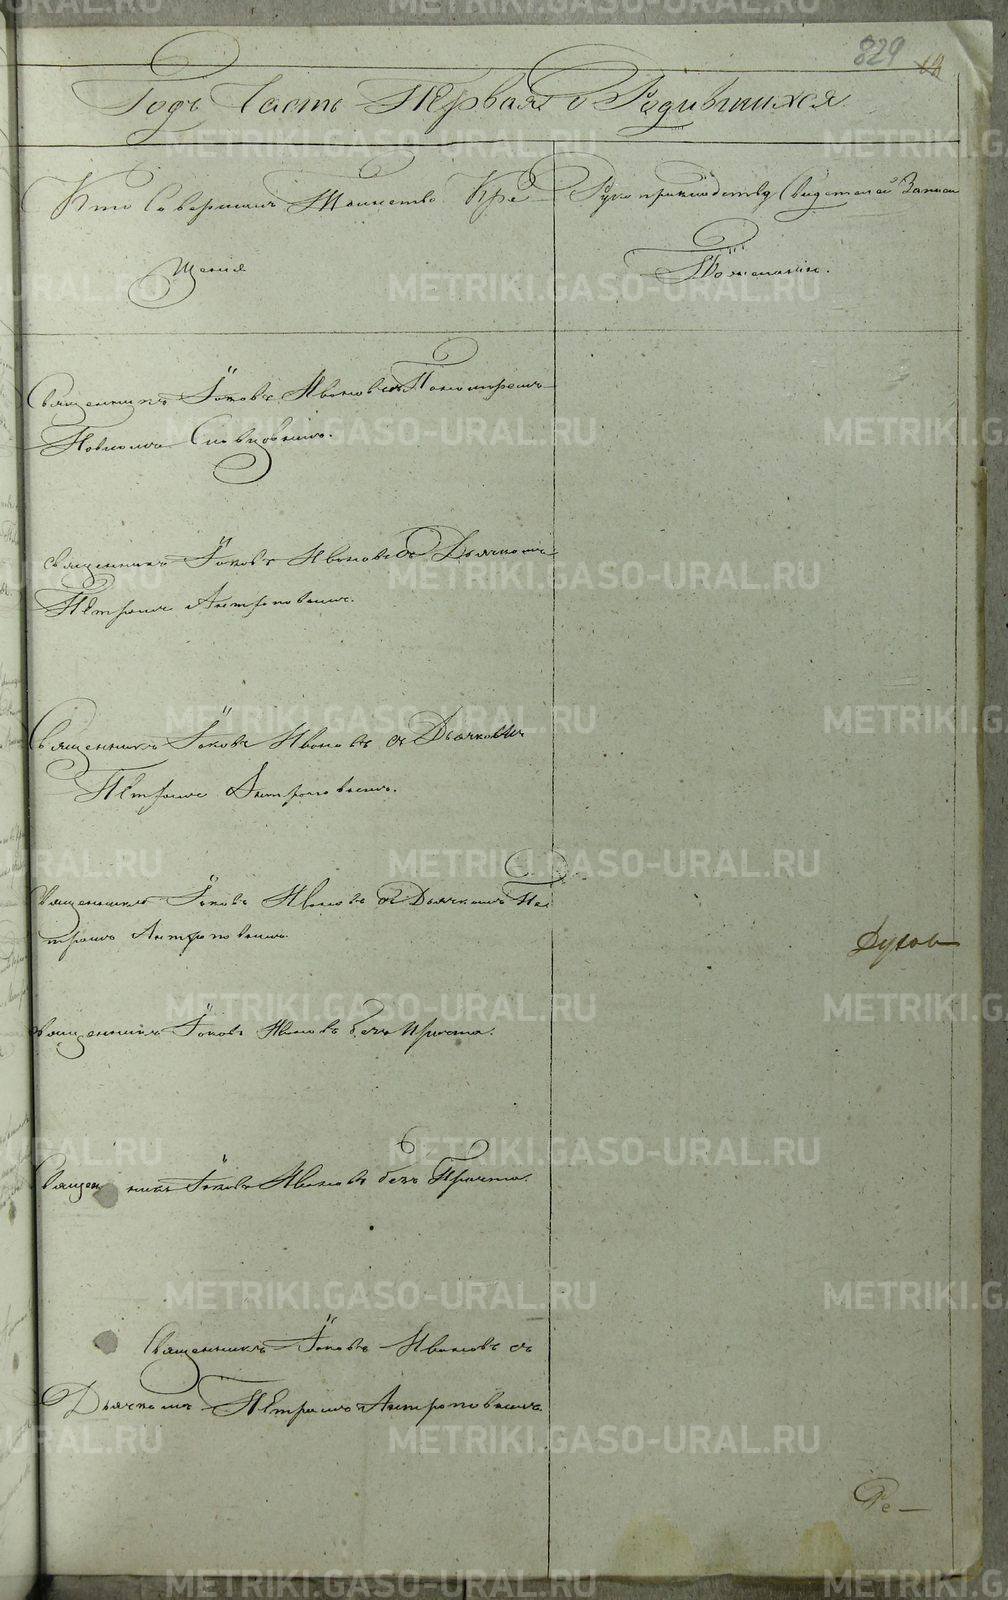 829
Годъ Часть Первая о Родившихся
Кто Совершилъ Таинство Кре
щения
Рукоприкладство Свидетелей Записи
По желанию.
Священникъ Iаковъ Ивановъ съ Пономаремъ
Павломъ Словцовымъ.
Священникъ Iаковъ Ивановъ съ Дьячкомъ
Петромъ Антроповымъ.
Священникъ Iаковъ Ивановъ съ Дьячкомъ
Петромъ Антроповымъ.
Священникъ Iаковъ Ивановъ съ Дьячкомъ Пе
тромъ Антроповымъ.
Духов
Священникъ Iаковъ Ивановъ безъ Причта.
Священникъ Iаковъ Ивановъ безъ Причта.
Священникъ Iаковъ Ивановъ съ
Дьячкомъ Петромъ Антроповымъ.
METRIKI.GASO-URAL.RU